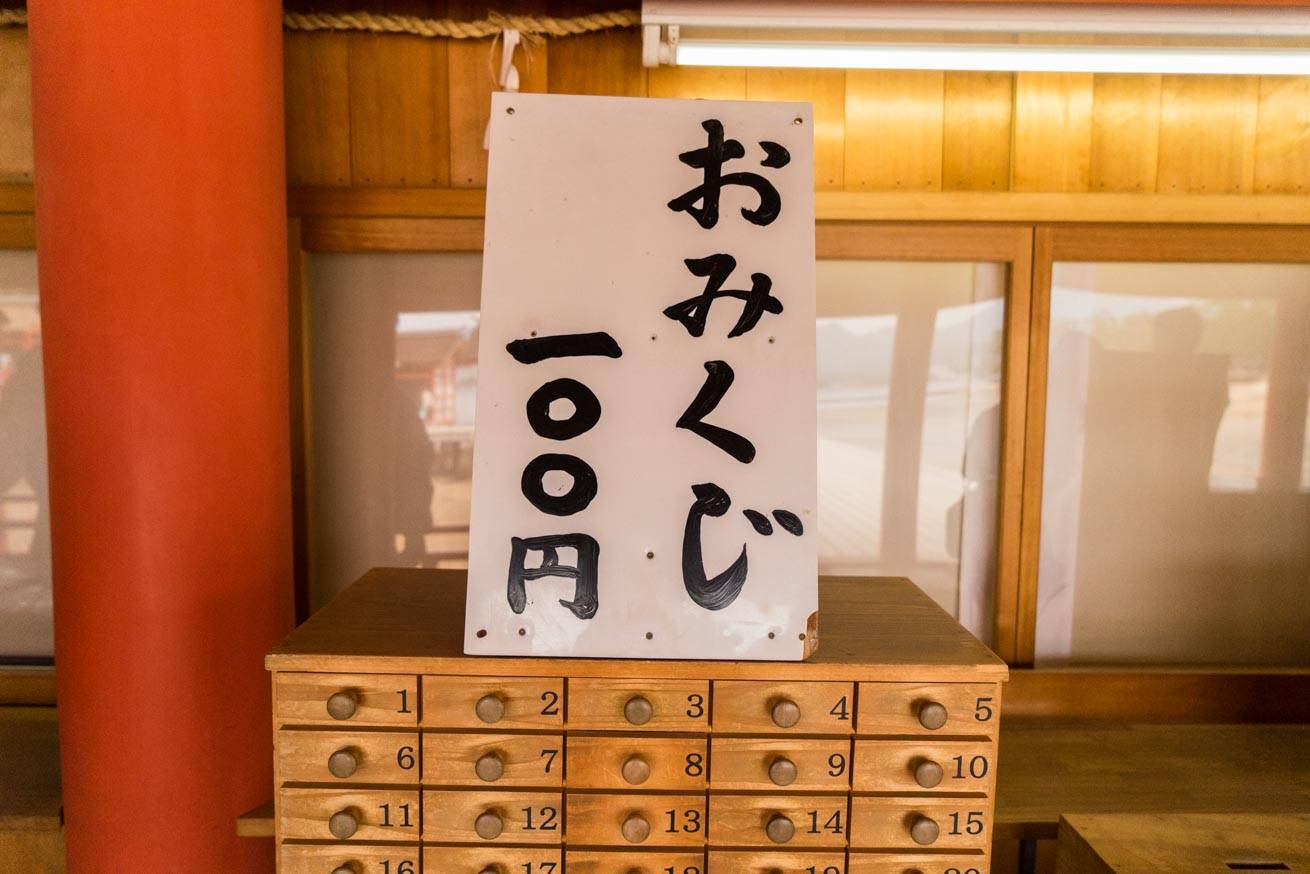 おみくじ
一〇〇円
1 2 3 4 5
6 7 8 9 10
11 12 13 14 15
16 17 18 19 20